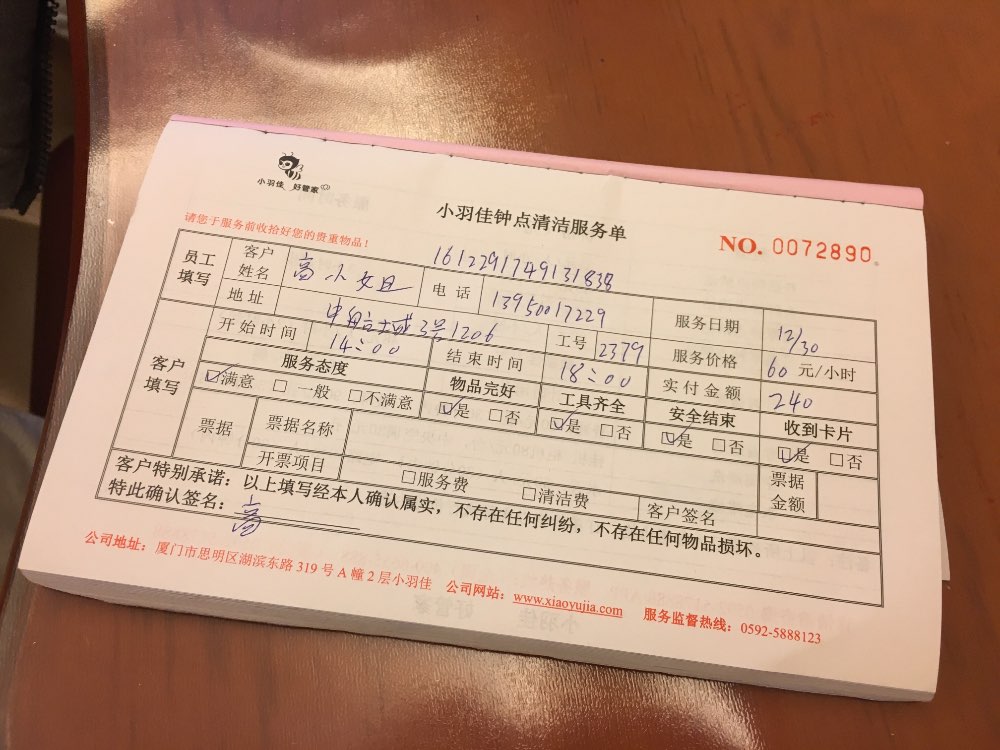 小羽佳 好管家
小羽佳钟点清洁服务单
请您于服务前收拾好您的贵重物品！
NO. 0072890
1612291749131838
员工填写 客户姓名 高小姐 电话 13950017229 服务日期 12/30
地址 3号1206 工号 2379 服务价格 60 元/小时
客户填写 开始时间 14:00 结束时间 18:00 实付金额 240
服务态度 物品完好 工具齐全 安全结束 收到卡片
☑满意 □一般 □不满意 ☑是 □否 ☑是 □否 ☑是 □否 ☑是 □否
票据 票据名称 票据金额
开票项目 □服务费 □清洁费 客户签名
客户特别承诺：以上填写经本人确认属实，不存在任何纠纷，不存在任何物品损坏。
特此确认签名：高
公司地址：厦门市思明区湖滨东路 319 号 A 幢 2 层小羽佳 公司网站：www.xiaoyujia.com 服务监督热线：0592-5888123